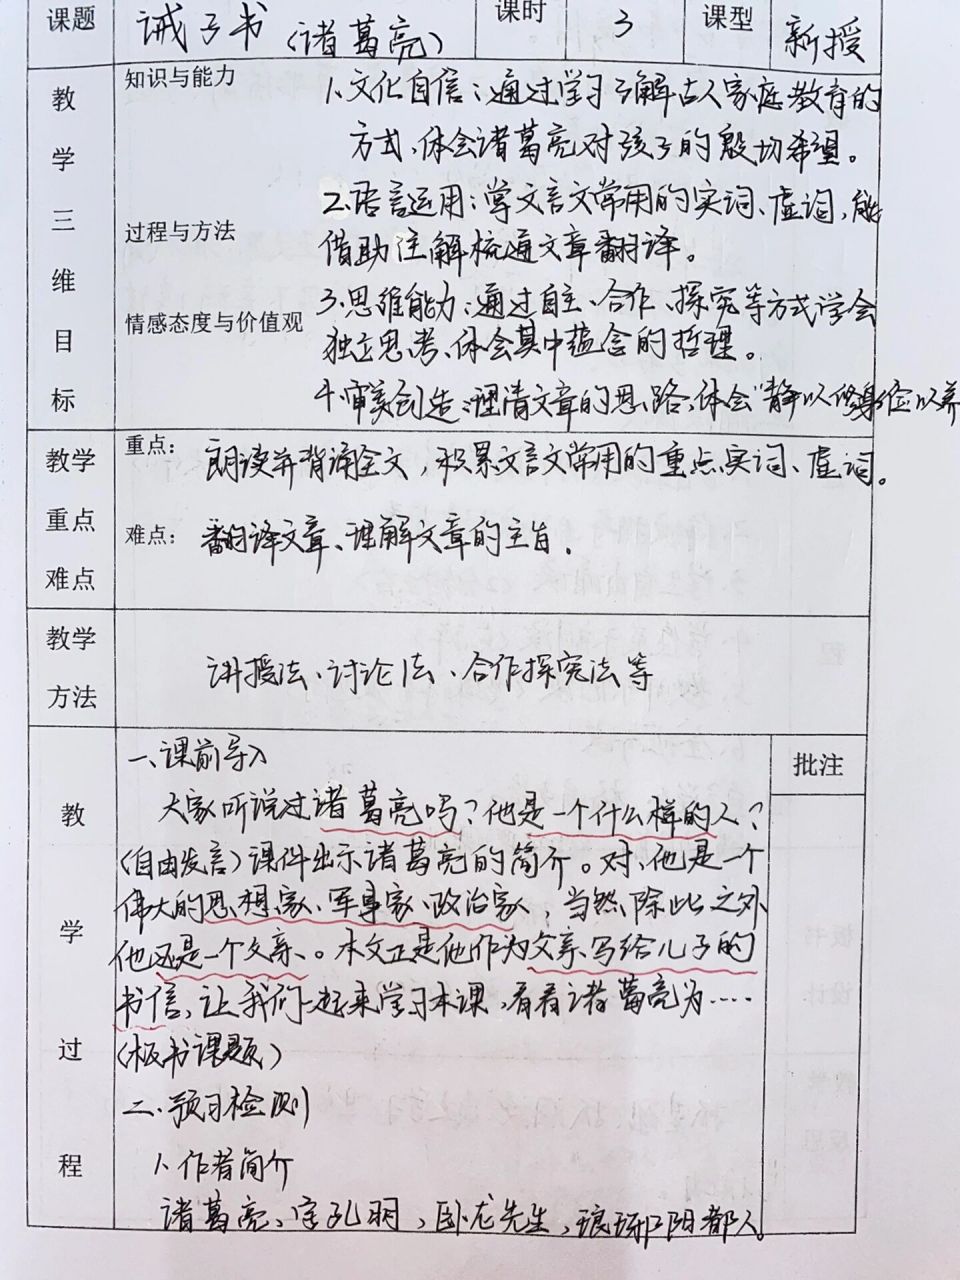 课题 诫子书（诸葛亮） 课时 3 课型 新授
教学三维目标
知识与能力
1.文化自信：通过学习了解古人家庭教育的
方式、体会诸葛亮对孩子的殷切希望。
2.语言运用：学文言文常用的实词、虚词，能
过程与方法
借助注解梳通文章翻译。
3.思维能力：通过自主、合作、探究等方式学会
情感态度与价值观
独立思考、体会其中蕴含的哲理。
4.审美创造：理清文章的思路，体会“静以修身俭以养
教学重点难点
重点：
朗读并背诵全文，积累文言文常用的重点实词、虚词。
难点：
翻译文章、理解文章的主旨.
教学方法
讲授法、讨论法、合作探究法等
教学过程
批注
一、课前导入
大家听说过诸葛亮吗？他是一个什么样的人？
（自由发言）课件出示诸葛亮的简介。对、他是一个
伟大的思想家、军事家、政治家，当然，除此之外
他还是一个父亲、。本文正是他作为父亲、写给儿子的
书信，让我们一起来学习本课，看看诸葛亮为……
（板书课题）
二、预习检测
1.作者简介
诸葛亮、字孔明，卧龙先生，琅琊阳都人。